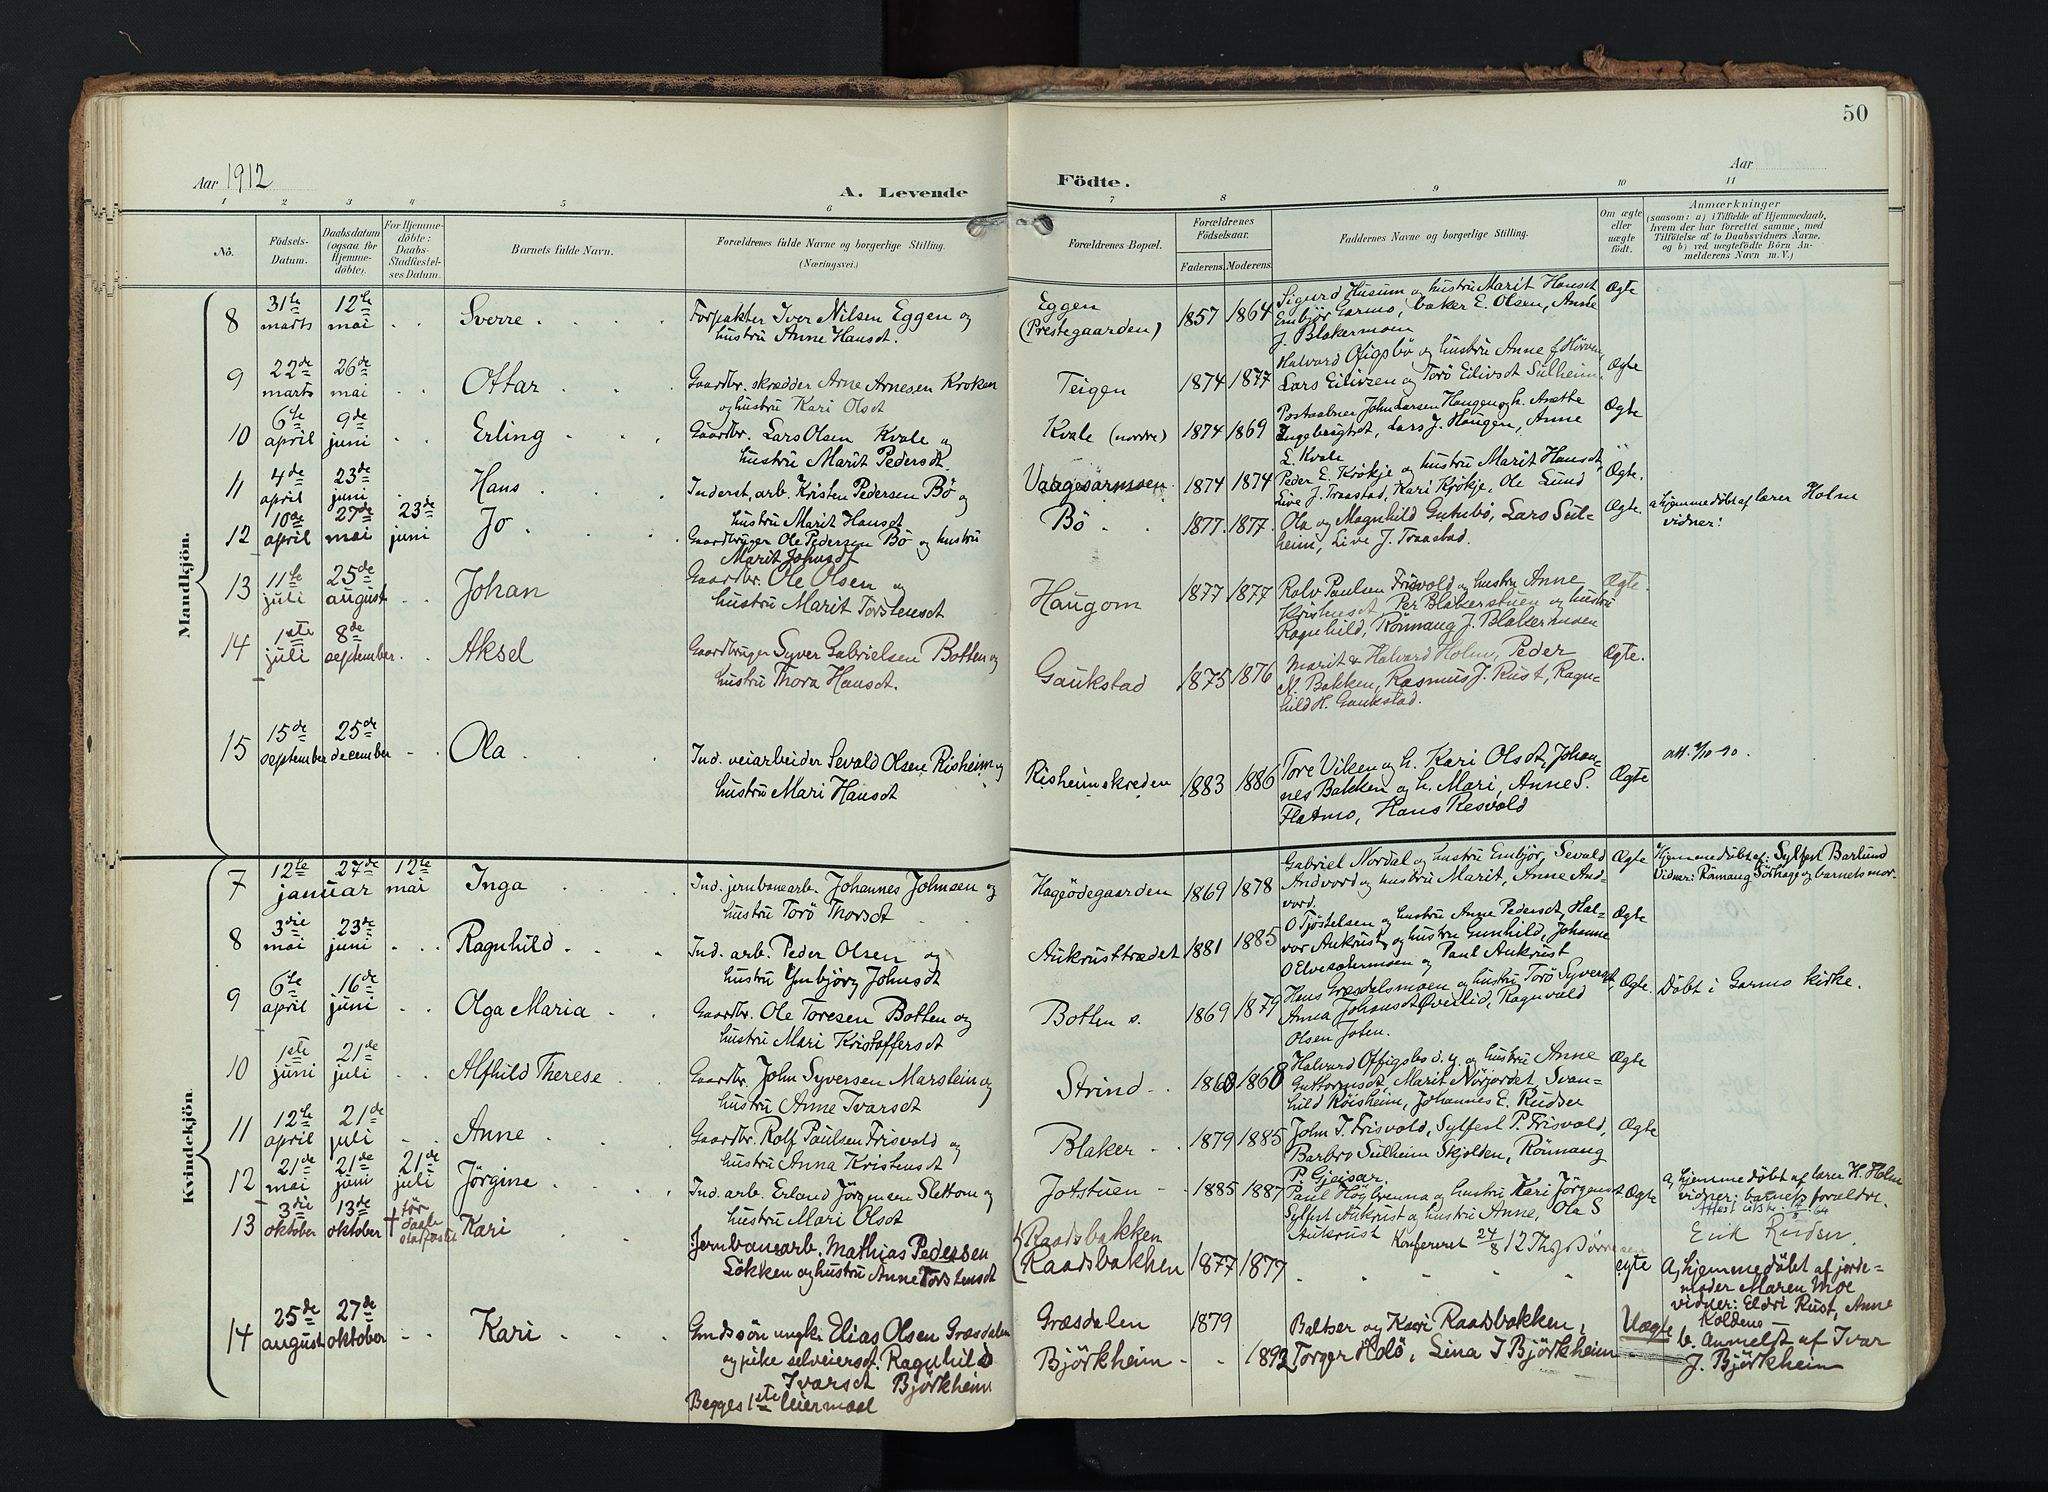 50
Aar 1912
A. Levende Födte.
Aar
1 2 3 4 5 6 7 8 9 10 11
No.
Födsels-
Datum.
Daabsdatum
(ogsaa for
Hjemme-
döbte).
For Hjemme-
döbte:
Daabs-
Stadfæstel-
ses Datum.
Barnets fulde Navn.
Forældrenes fulde Navne og borgerlige Stilling.
(Næringsvei.)
Forældrenes Bopæl.
Forældrenes
Födselsaar.
Faderens.
Moderens.
Faddernes Navne og borgerlige Stilling.
Om ægte
eller
uægte
födt.
Anmærkninger
(saasom: a) i Tilfælde af Hjemmedaab,
hvem der har forrettet samme, med
Tilföielse af to Daabsvidners Navne,
og b) ved uægtefödte Börn An-
melderens Navn m. V.)
Mandkjön.
8
31te marts
12te mai
Sverre
Forpakter Iver Nilsen Eggen og
hustru Anne Hansdt.
Eggen
(Prestegaarden)
1857 1864
Sigurd Husum og hustru Marit Hansdt
Embjör Garmo, baker E. Olsen, Anne
J. Blakermoen
Ægte
9
22de marts
26de mai
Ottar
Gaardbr. skrædder Arne Arnesen Kroken
og hustru Kari Olsdt
Teigen
1874 1877
Halvard Ofigsbö og hustru Anne
Lars Eilivsen og Torö Eilivsdt Sulheim.
Ægte
10
6te april
9de juni
Erling
Gaardbr. Lars Olsen Kvale og
hustru Marit Pedersdt.
Kvale (nordre)
1874 1869
Postaabner John Larsen Haugen og h. Anette
Ingebrigtsdt, Lars J. Haugen, Anne
L. Kvale
Ægte
11
4de april
23de juni
Hans
Inderst, arb. Kristen Pedersen Bö og
hustru Marit Hansdt
Vaagesarmoen
1874 1874
Peder E. Krökje og hustru Marit Hansdt,
Live J. Traastad, Kari Krökje, Ole Lund
Ægte.
12
10de april
27de mai
23de juni
Jo
Gaardbruger Ole Pedersen Bö og hustru
Marit Johnsdt
Bö
1877. 1877.
Ola og Magnhild Gutubö, Lars Sul-
heim, Live J. Traastad.
Ægte.
a hjemmedöbt af lærer Holm
vidner:
13
11te juli
25de august
Johan
Gaardbr. Ole Olsen og
hustru Marit Torstensdt
Haugom
1877 1877
Rolv Paulsen Frisvold og hustru Anne
Kristensdt, Per Blakerstuen og hustru
Ragnhild, Rönnaug J. Blakermoen
Ægte.
14
1ste juli
8de september.
Aksel
Gaardbruger Syver Gabrielsen Botten og
hustru Thora Hansdt.
Gaukstad
1875 1876
Marit & Halvard Holm, Peder
N. Bakken, Rasmus J. Rust, Ragn-
hild H. Gaukstad.
Ægte.
15
15de september
25de december
Ola
Ind. veiarbeider Sevald Olsen Risheim og
hustru Mari Hansdt
Risheimskreden
1883 1886
Tore Viken og h. Kari Olsdt, Johan-
nes Bakken og h. Mari, Anne S.
Flatmo, Hans Resvold
Ægte
Kvindekjön.
7
12te januar
27de
12te mai
Inga
Ind. jernbanearb. Johannes Johnsen og
hustru Torö Thorsdt
Hageödegaarden
1869 1878
Gabriel Nordal og hustru Embjör, Sevald
Andvord og hustru Marit, Anne And-
vord.
Ægte
Hjemmedöbt af: Sylfest Barlund
Vidner: Rönnaug Sörhage og barnets mor.
8
3die mai
23de juni
Ragnhild
Ind. arb. Peder Olsen og
hustru Ymbjörg Johnsdt
Aukrusttrædet
1881 1885
O Tjöstelsen og hustru Anne Pedersdt, Hal-
vor Aukrust og hustru Gunhild, Johanne
O Elvesætermoen og Paul Aukrust
Ægte
9
6te april
16de juni
Olga Maria
Gaardbr. Ole Toresen Botten og
hustru Mari Kristoffersdt
Botten s.
1869 1879
Hans Græsdalsmoen og hustru Torö Syversdt
Anna Johansdt Överlid, Ragnvald
Olsen Joten.
Ægte.
Döbt i Garmo kirke.
10
1ste juni
21de juli
Alfhild Therese
Gaardbr. John Syversen Marstein og
hustru Anne Ivarsdt
Strind
1868 1868
Halvard Offigsbö d.y. og hustru Anne
Guttormsdt, Marit Nörjordet, Svan-
hild Röisheim, Johannes E. Rudser
Ægte
11
12te april
21de juli
Anne
Gaardbr. Rolf Paulsen Frisvold og
hustru Anna Kristensdt
Blaker
1879 1885
John T. Frisvold, Sylfest P. Frisvold,
Barbro Sulheim Skjolden, Rönnaug
P. Gjeisar.
Ægte
12
21de mai
21de juni
21de juli
Jörgine
Ind. arb. Erland Jörgensen Slettom og
hustru Mari Olsdt
Jotstuen
1885 1887
Paul Högbrenna og hustru Kari Jörgensdt
Sylfest Aukrust og hustru Anne, Ola S
Aukrust
Ægte
a, hjemmedöbt af lærer H. Holm
vidner: barnets forældre.
Konfereret 24/8 12
13
3die oktober
13de oktober
† för daabs stadfæstelse
Kari
Jernbanearb. Mathias Pedersen
Lökken og hustru Anne Torstensdt
Raadsbakken
Raadsbakken
1877 1877
ægte
Erik Ruden.
A, hjemmedöbt af jorde-
moder Maren Moe
vidner: Eldri Rust, Anne
Kolden
14
25de august
27de oktober
Kari
Gmdssön ungk. Elias Olsen Græsdalen
og pike selveiersdt. Ragnhild
Ivarsdt Björkheim
Begges 1ste leiermaal
Græsdalen
Björkheim
1879
1892
Baltser og Kari Raadsbakken,
Torger Holö, Lina I Björkheim
Uægte
b. Anmeldt af Ivar
J. Björkheim